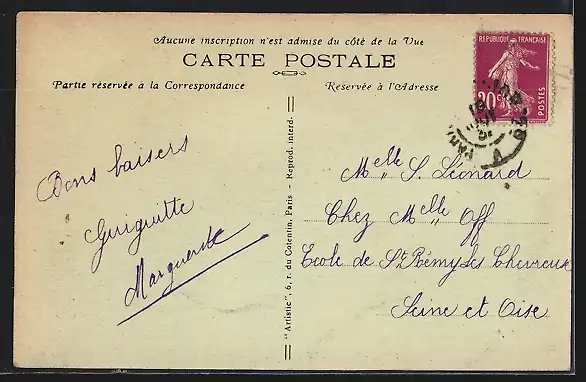 Aucune inscription n'est admise du côté de la Vue
CARTE POSTALE
Partie réservée à la Correspondance
Réservée à l'Adresse
REPUBLIQUE FRANÇAISE
20c
POSTES
Bons baisers
Guiguitte
Marguerite
"Artistic", 6, r. du Cotentin, Paris - Reprod. interd.
Melle S. Léonard
Chez Melle Off
Ecole de St Rémy les Chevreux
Seine et Oise